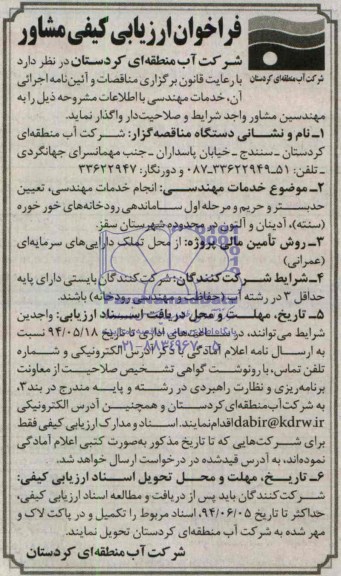 فراخوان ارزیابی کیفی مشاور
شرکت آب منطقه‌ای کردستان
شرکت آب منطقه‌ای کردستان در نظر دارد
با رعایت قانون برگزاری مناقصات و آئین‌نامه اجرائی
آن، خدمات مهندسی با اطلاعات مشروحه ذیل را به
مهندسین مشاور واجد شرایط و صلاحیت‌دار واگذار نماید.
۱ـ نام و نشانی دستگاه مناقصه‌گزار: شرکت آب منطقه‌ای
کردستان ـ سنندج ـ خیابان پاسداران ـ جنب مهمانسرای جهانگردی
ـ تلفن: ۵۱ـ۳۳۶۲۲۹۴۹ـ۰۸۷ و دورنگار: ۳۳۶۲۲۹۴۷
۲ـ موضوع خدمات مهندسی: انجام خدمات مهندسی، تعیین
حدبستر و حریم و مرحله اول ساماندهی رودخانه‌های خور خوره
(سنته)، آدینان و در محدوده شهرستان سقز.
۳ـ روش تأمین مالی پروژه: از محل تملک دارایی‌های سرمایه‌ای
(عمرانی)
۴ـ شرایط شرکت‌کنندگان: شرکت‌کنندگان بایستی دارای پایه
حداقل ۳ در رشته آب (حفاظت و مهندسی رودخانه) باشند.
۵ـ تاریخ، مهلت و محل دریافت اسناد ارزیابی: واجدین
شرایط می‌توانند، در ساعت‌های اداری تا تاریخ ۹۴/۰۵/۱۸ نسبت
به ارسال نامه اعلام آمادگی با ذکر آدرس الکترونیکی و شماره
تلفن تماس، با رونوشت گواهی تشخیص صلاحیت از معاونت
برنامه‌ریزی و نظارت راهبردی در رشته و پایه مندرج در بند۳،
به شرکت آب منطقه‌ای کردستان و همچنین آدرس الکترونیکی
dabir@kdrw.ir اقدام نمایند. اسناد و مدارک ارزیابی کیفی فقط
برای شرکت‌هایی که تا تاریخ مذکور به‌صورت کتبی اعلام آمادگی
نموده‌اند، به آدرس قیدشده در درخواست ارسال خواهد شد.
۶ـ تاریخ، مهلت و محل تحویل اسناد ارزیابی کیفی:
شرکت‌کنندگان باید پس از دریافت و مطالعه اسناد ارزیابی کیفی،
حداکثر تا تاریخ ۹۴/۰۶/۰۵، اسناد مربوط را تکمیل و در پاکت لاک و
مهر شده به شرکت آب منطقه‌ای کردستان تحویل نمایند.
شرکت آب منطقه‌ای کردستان
۰۲۱-۸۸۳۴۹۶۷۰-۵